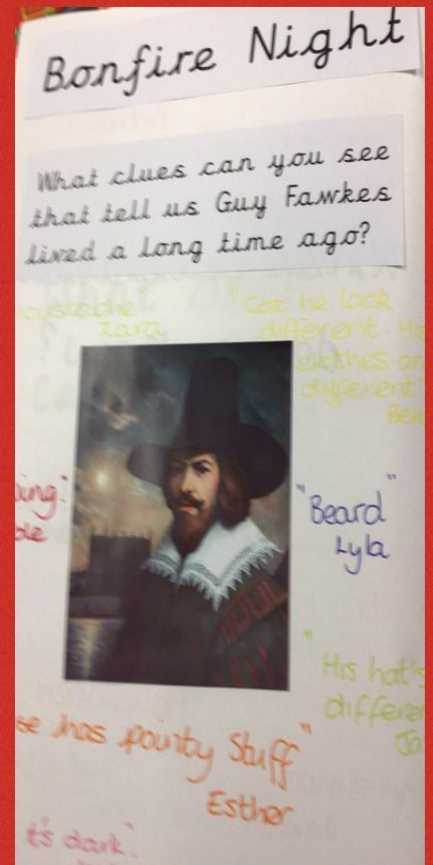 Bonfire Night
What clues can you see
that tell us Guy Fawkes
lived a long time ago?
moustache"
Zara
"Coz he look
different. His
clothes are
different"
Ben
"Beard"
Lyla
"His hat's
different
has pointy Stuff"
Esther
it's dark".